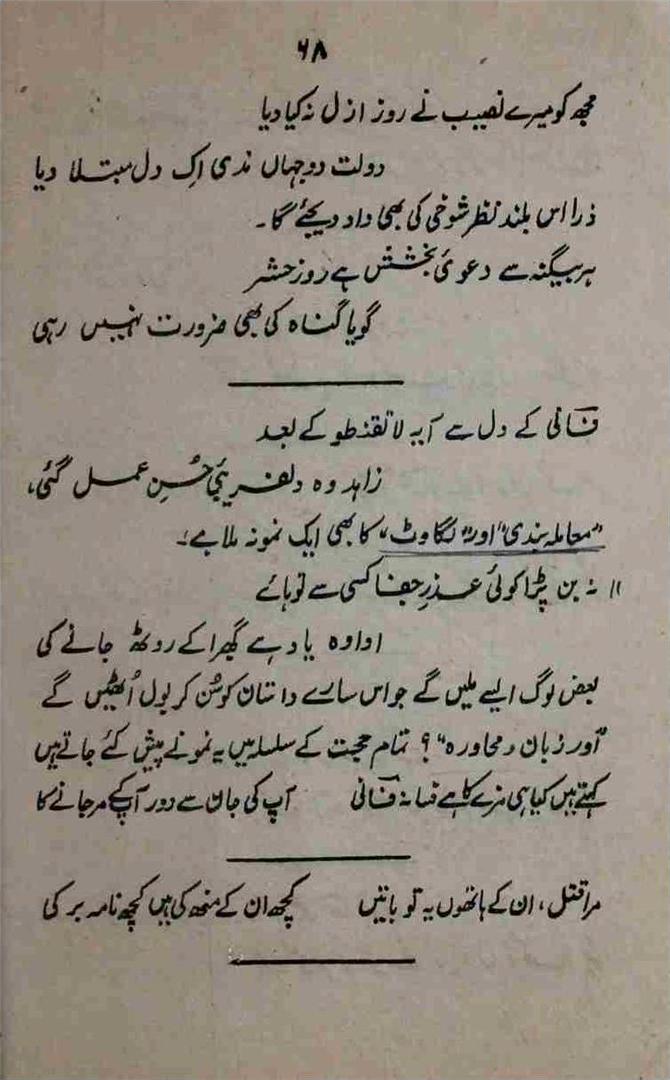 ۶۸
مجھ کو میرے نصیب نے روز ازل نہ کیا دیا
دولت دوجہاں نہ دی اک دل مبتلا دیا
ذرا اس بلند نظر شوخی کی بھی داد دیجئے گا۔
ہر بیگنہ سے دعویٰ بخشش ہے روز حشر
گویا گناہ کی بھی ضرورت نہیں رہی
فانی کے دل سے آیہ لاتقنطو کے بعد
زاہد وہ دلفریبیٔ حُسنِ عمل گئی،
"معاملہ بندی" اور "لگاوٹ" کا بھی ایک نمونہ ملا ہے:۔
// نہ بن پڑا کوئی عذرِ جفا کسی سے تو ہائے
ادا وہ یاد ہے گھبرا کے روٹھ جانے کی
بعض لوگ ایسے ملیں گے جو اس سارے داستان کو سُن کر بول اُٹھیں گے
"اور زبان و محاورہ"؟ تمام حجت کے سلسلہ میں یہ نمونے پیش کئے جاتے ہیں
کہتے ہیں کیا ہی مزے کا ہے فسانہ فانی آپ کی جان سے دور آپ کے مرجانے کا
مراقتل، ان کے ہاتھوں یہ تو باتیں کچھ ان کے منھ کی ہیں کچھ نامہ بر کی